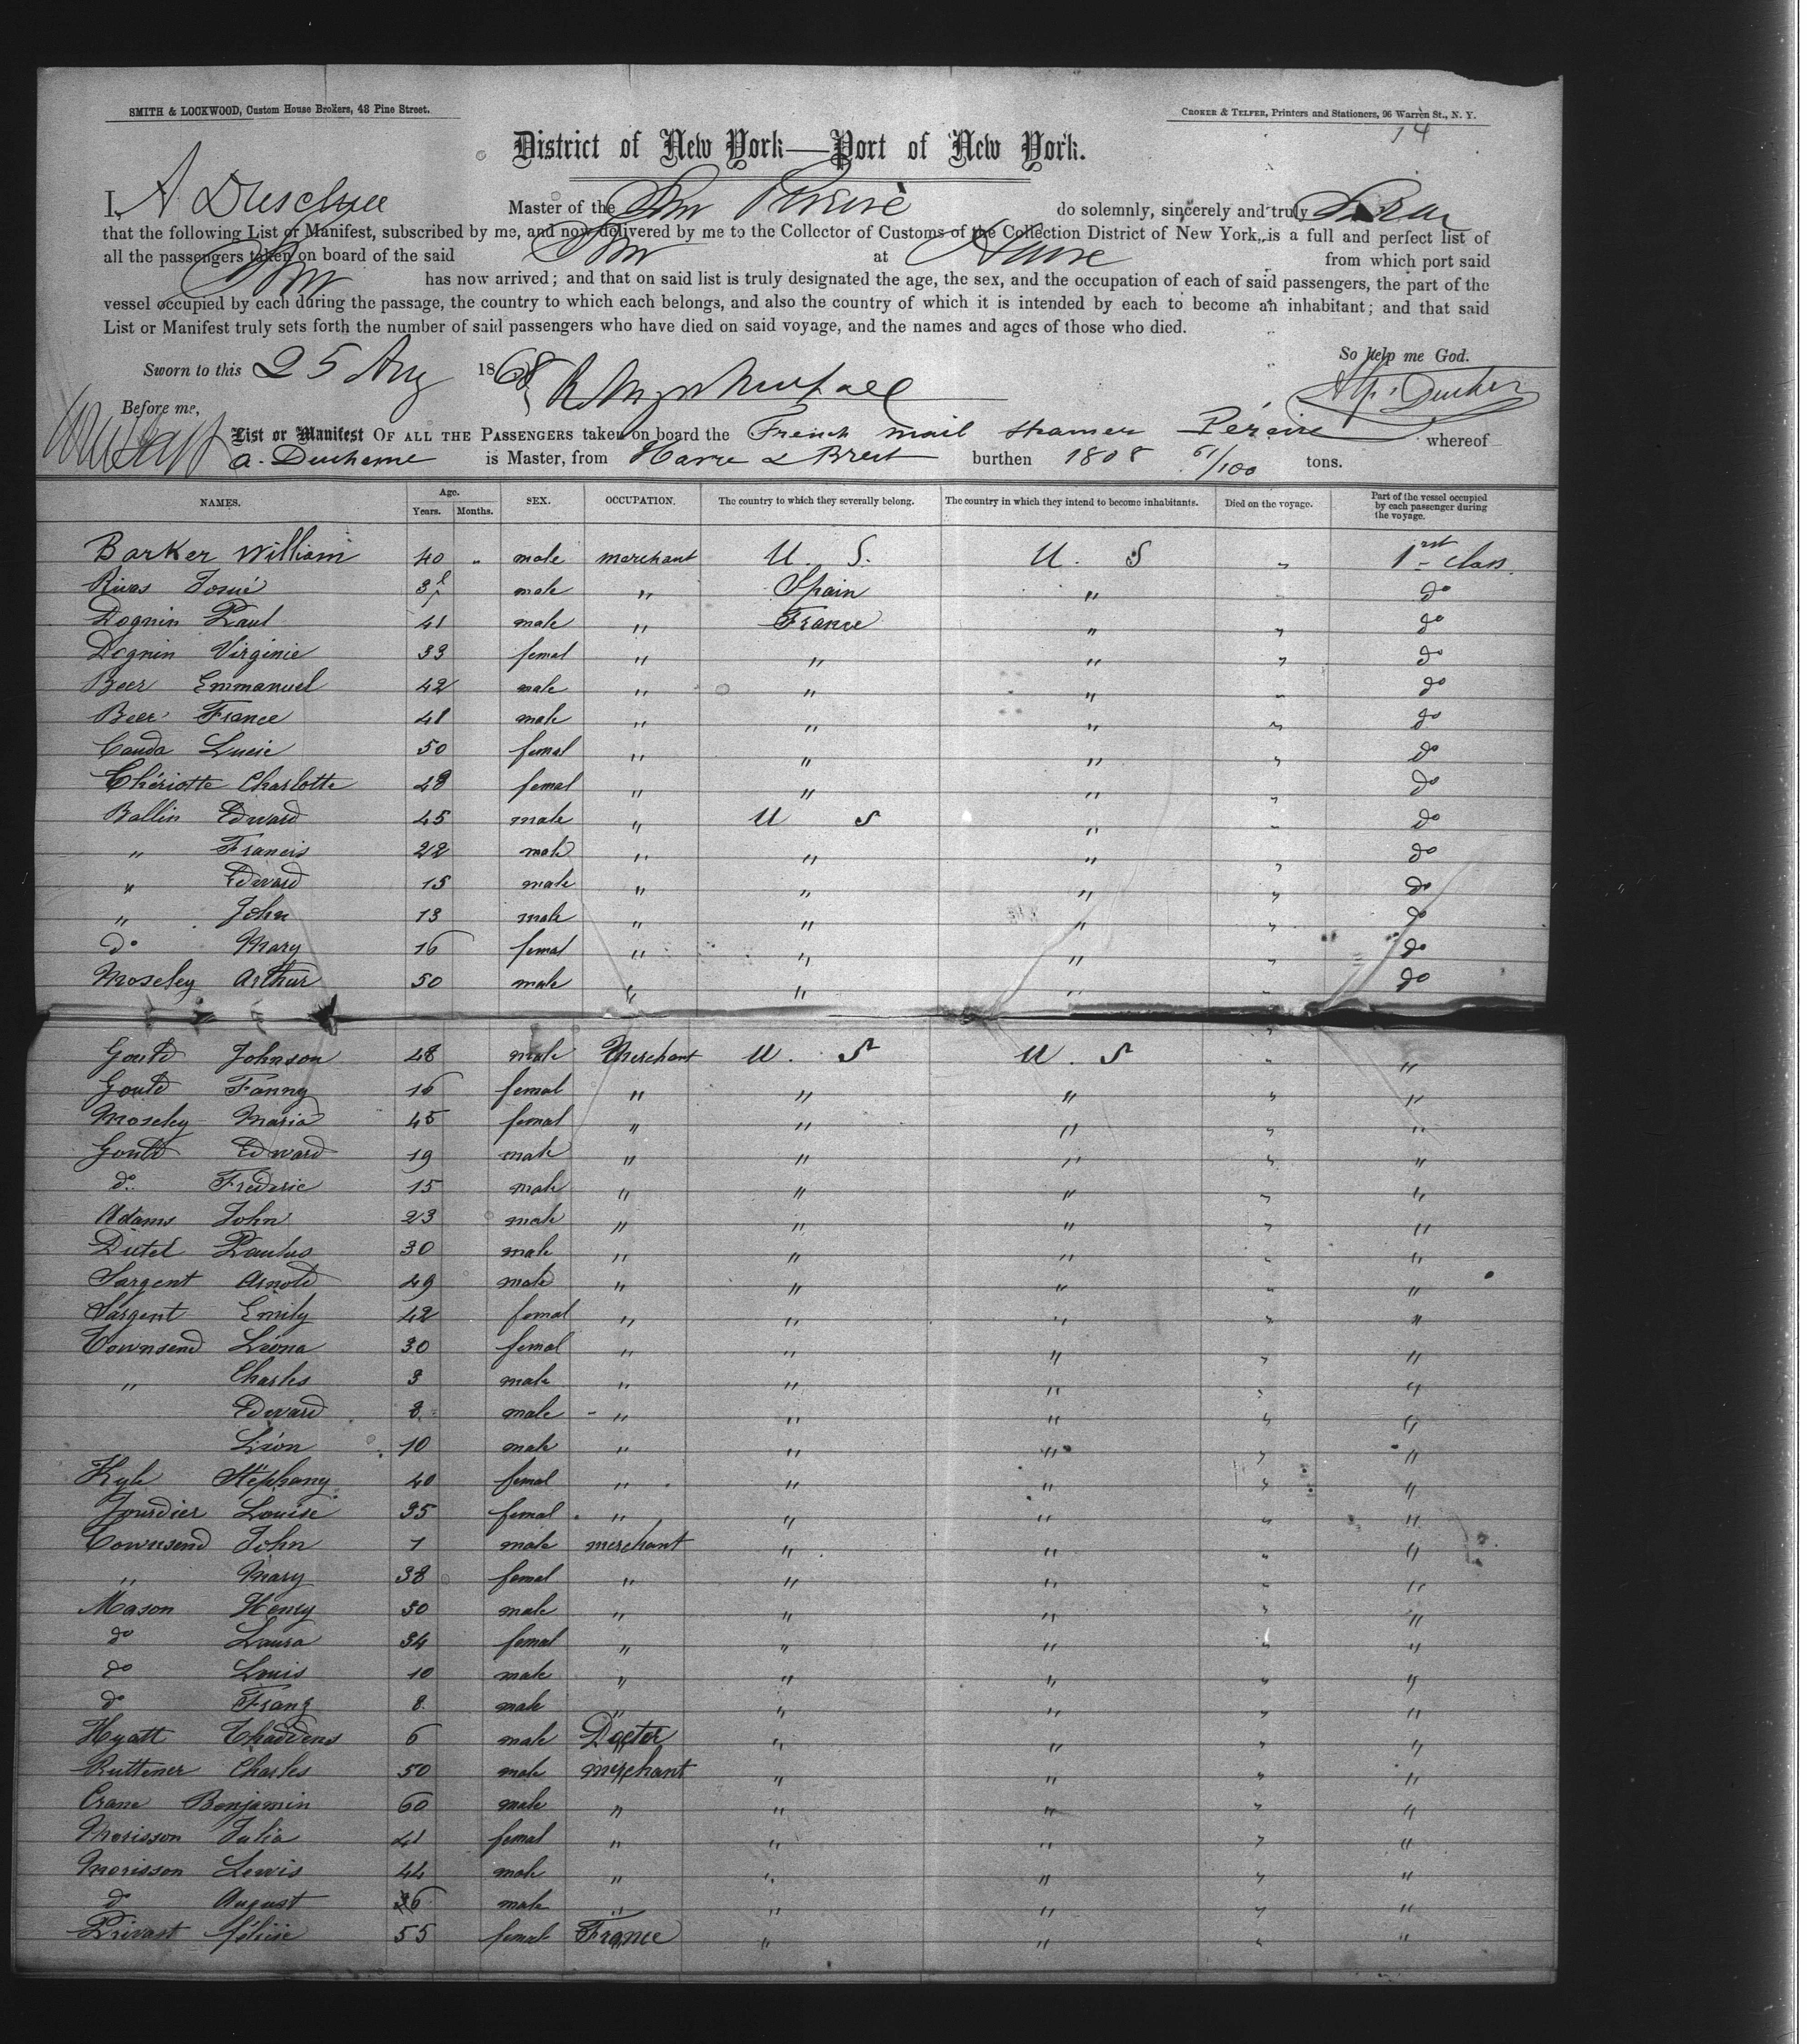 SMITH & LOCKWOOD, Custom House Brokers, 48 Pine Street.
CROKER & TELFER, Printers and Stationers, 96 Warren St., N. Y.
14
District of New York—Port of New York.
I, A Duschee Master of the Str Pereire do solemnly, sincerely and truly Swear
that the following List or Manifest, subscribed by me, and now delivered by me to the Collector of Customs of the Collection District of New York, is a full and perfect list of
all the passengers taken on board of the said Str at Havre from which port said
Str has now arrived; and that on said list is truly designated the age, the sex, and the occupation of each of said passengers, the part of the
vessel occupied by each during the passage, the country to which each belongs, and also the country of which it is intended by each to become an inhabitant; and that said
List or Manifest truly sets forth the number of said passengers who have died on said voyage, and the names and ages of those who died.
So help me God.
Sworn to this 25 Aug 1868
Before me,
List or Manifest OF ALL THE PASSENGERS taken on board the French mail steamer Péreire whereof
A. Ducheme is Master, from Havre & Brest burthen 1808 61/100 tons.
NAMES. Age. Years. Months. SEX. OCCUPATION. The country to which they severally belong. The country in which they intend to become inhabitants. Died on the voyage. Part of the vessel occupied by each passenger during the voyage.
Barker William 40 " male merchant U. S. U. S " 1rst class.
Rivas Josué male " Spain " do
Dognin Paul 41 male " France " " do
Dognin Virginie 33 femal " " " " do
Beer Emmanuel 42 male " " " " do
Beer France 41 male " " " " do
Canda Lucie 50 femal " " " " do
Chériotte Charlotte femal " " " " do
Ballin Edward 45 male " U S " " do
" Francis 22 male " " " " do
" Edward 15 male " " " " do
" John 13 male " " " " do
do Mary 16 femal " " " " do
Moseley Arthur 50 male " " " " do
Gould Johnson 48 male Merchant U. S U. S " "
Gould Fanny 16 femal " " " " "
Moseley Maria 45 femal " " " " "
Gould Edward 19 male " " " " "
do Frederic 15 male " " " " "
Adams John 23 male " " " " "
Dutel Paulus 30 male " " " " "
Sargent Arnold 49 male " " " " "
Sargent Emily 42 femal " " " " "
Townsend Léona 30 femal " " " " "
" Charles 3 male " " " " "
Edward 8 male " " " " "
Léon 10 male " " " " "
Kyle Stéphany 40 femal " " " " "
Jourdier Louise 35 femal " " " " "
Townsend John 7 male merchant " " " "
" Mary 38 femal " " " " "
Mason Henry 30 male " " " " "
do Laura 34 femal " " " " "
do Louis 10 male " " " " "
do Franz 8 male " " " " "
Hyatt Thaddens 6 male Docter " " " "
Ruttener Charles 50 male merchant " " " "
Crane Benjamin 60 male " " " " "
Morisson Julia 41 femal " " " " "
Morisson Lewis 44 male " " " " "
do August 36 male " " " " "
Privast félicie 55 femal France " " " "